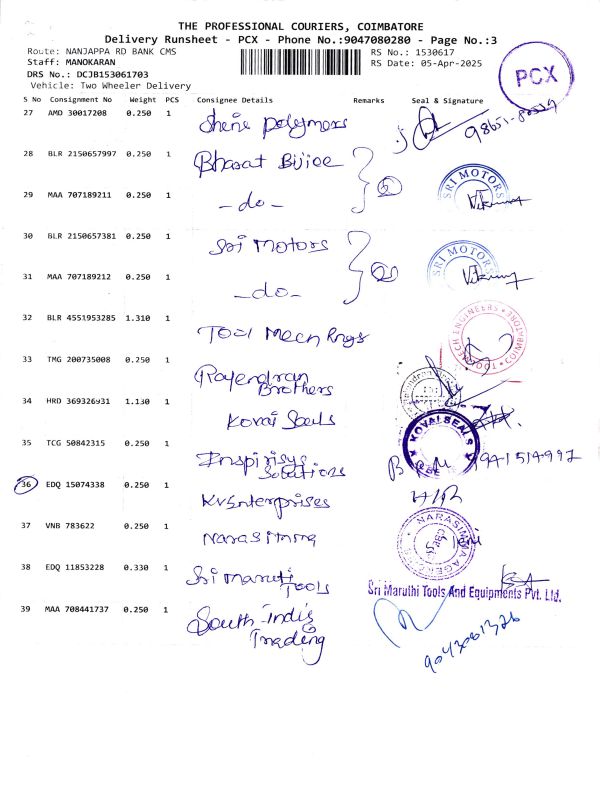 THE PROFESSIONAL COURIERS, COIMBATORE
Delivery Runsheet - PCX - Phone No.:9047080280 - Page No.:3
Route: NANJAPPA RD BANK CMS
RS No.: 1530617
Staff: MANOKARAN
RS Date: 05-Apr-2025
DRS No.: DCJB153061703
PCX
Vehicle: Two Wheeler Delivery
S No Consignment No Weight PCS Consignee Details Remarks Seal & Signature
27 AMD 30017208 0.250 1 Shene polymers
28 BLR 2150657997 0.250 1 Bharat Bijlee
SRI MOTORS
29 MAA 707189211 0.250 1 -do-
30 BLR 2150657381 0.250 1 Sri Motors
SRI MOTORS
31 MAA 707189212 0.250 1 -do-
32 BLR 4551953285 1.310 1 Tool Mech Rngs
TOOL MECH ENGINEERS COIMBATORE
33 TMG 200735008 0.250 1 Rajendran
Brothers
34 HRD 369326931 1.130 1 Kovai Seals
KOVAI SEALS
35 TCG 50842315 0.250 1 Inspirisys
Solutions
36 EDQ 15074338 0.250 1 KVEnterprises
37 VNB 783622 0.250 1 Narasimma
38 EDQ 11853228 0.330 1 Sri Maruti
Tools
Sri Maruthi Tools And Equipments Pvt. Ltd.
39 MAA 708441737 0.250 1 South India
Trading